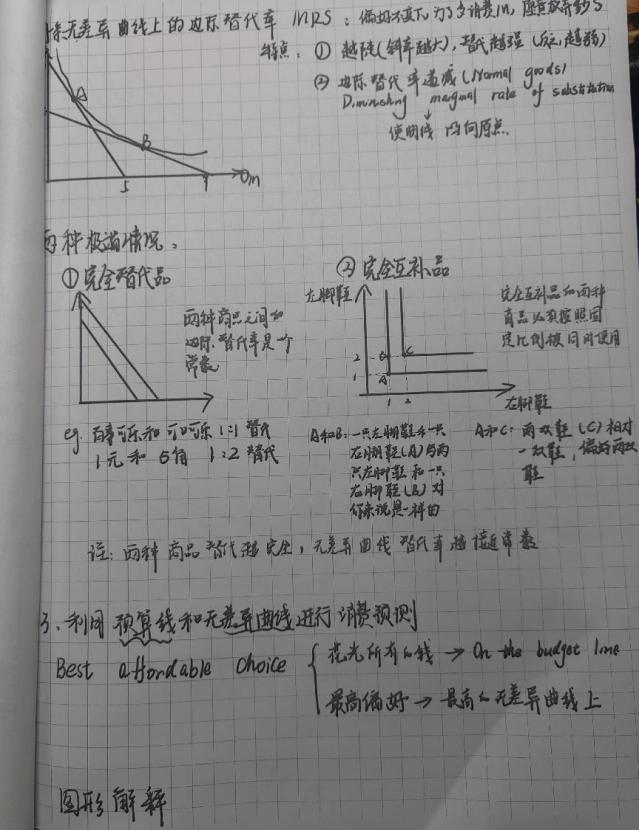 无差异曲线上的边际替代率 MRS：偏好不变下，为了多消费m，愿意放弃多少S
特点：① 越陡(斜率越大)，替代越强
② 边际替代率递减 (Normal goods)
Diminishing marginal rate of substitution
使曲线凹向原点
A
B
5
m
两种极端情况：
①完全替代品
两种商品之间的
边际替代率是一个
常数
eg. 百事可乐和可口可乐 1:1 替代
1元和5角 1:2 替代
②完全互补品
左脚鞋
2
B
C
1
A
1 2
右脚鞋
完全互补品的两种
商品必须按照固
定比例被同时使用
A和B：一只左脚鞋和一只
右脚鞋(A)与两
只左脚鞋和一只
右脚鞋(B)对
你来说是一样的
A和C：两双鞋(C)相对
一双鞋，偏好两双
鞋
注：两种商品替代越完全，无差异曲线替代率越接近常数
3、利用预算线和无差异曲线进行消费预测
Best affordable choice
花光所有的钱 → On the budget line
最高偏好 → 最高的无差异曲线上
图形解释